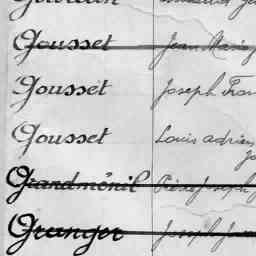 Gousset Jean Marie
Gousset Joseph Fran
Gousset Louis adrien
Grandménil Pierre Joseph
Granger Joseph